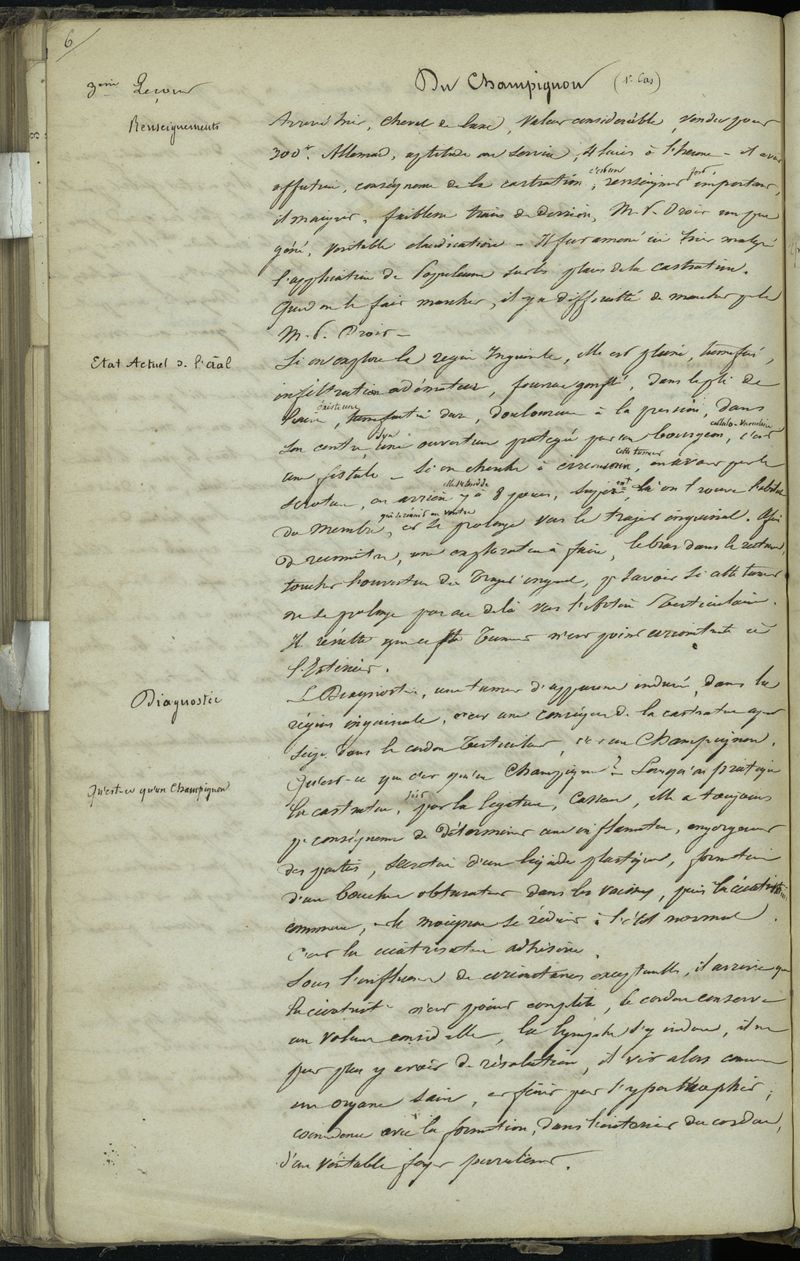 6
3eme Leçon
Du Champignon (1er Cas)
Renseignements
Arrivé hier, cheval de luxe, valeur considérable, vendu pour
300 Allemand, aptitude au service, 4 lieues à l'heure - il avait
c'est un fort
affection, conséquence de la castration, renseignement important,
il maigrit, faiblesse train de derrière, M. P. Droit un peu
gêné, véritable claudication - Il fut amené ici hier malgré
l'application de Populeum sur les plaies de la castration.
Quand on le fait marcher, il y a difficulté de marcher par le
M. P. Droit -
Etat Actuel de l'aal
Si on explore la région Inguinale, elle est pleine, tuméfiée,
infiltration oedémateuse, fourreau gonflé, dans le pli de
l'aine, dure, douloureuse à la pression, dans
son centre, une ouverture protégée par un bourgeon, c'est
cette tumeur
une fistule - Si on cherche à, en avant par le
scrotum, en arrière
qui se réunit au ventre
du membre, et se prolonge vers le trajet inguinal. Afin
de reconnaître, une exploration à faire, le bras dans le rectum,
toucher l'ouverture du Trajet inguinal, pr savoir si cette tumeur
ne se prolonge pas au delà vers l'Artère Testiculaire.
Il résulte que cette Tumeur n'est point circonscrite à
l'Extérieur.
Diagnostic
Le Diagnostic, une tumeur d'apparence indurée, dans la
région inguinale, est une conséquence de la castration ayant
siège dans le cordon Testiculaire, c'est un Champignon.
Qu'est-ce qu'un Champignon
Qu'est-ce que c'est qu'un Champignon ? - Lorsqu'on pratique
soit
la castration, par la ligature, Casseau, elle a toujours
pr conséquence de déterminer une inflammation, engorgement
des parties, secrétion d'un liquide plastique, formation
d'un bouchon obturateur dans les vaisseaux, puis la cicatrisation
commence, et le moignon se réduit à l'état normal.
C'est la cicatrisation adhésive.
Sous l'influence de circonstances exceptionnelles, il arrive que
la cicatrisation n'est point complète, le cordon conserve
un volume considérable, la lymphe s'y indure, il ne
peut plus y avoir de résolution, il vit alors comme
un organe sain, et finit par l'hypertrophier;
coïncidence avec la formation, dans l'intérieur du cordon,
d'un véritable foyer purulent.